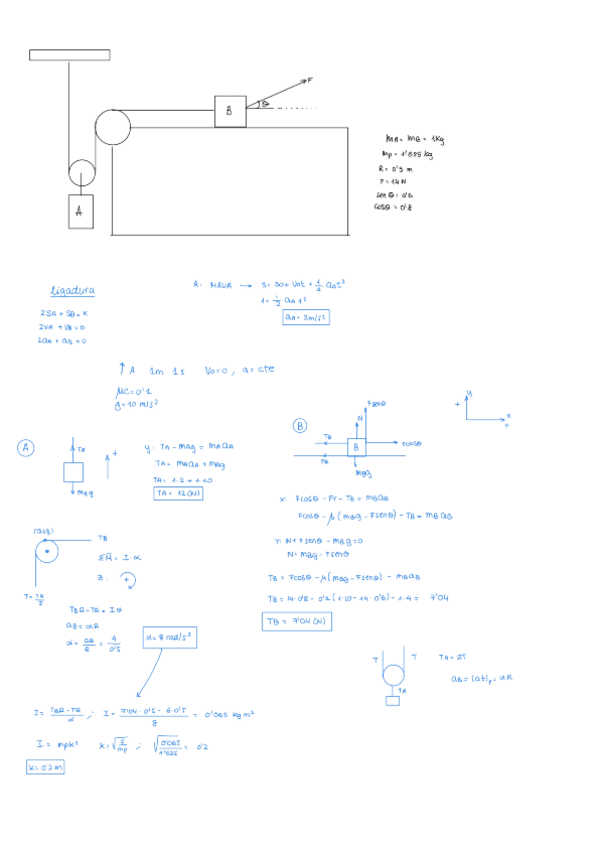 F
B
θ
A
mA = mB = 1Kg
mp = 1'625 kg
R = 0'5 m
F = 14 N
sen θ = 0'6
cosθ = 0'8
ligadura
2SA + SB = K
2VA + VB = 0
2aA + aB = 0
A: MRUA → S = S0 + V0t + 1/2 aAt²
1 = 1/2 aA 1²
aA = 2m/s²
↑ A 1m 1s V0=0, a = cte
μC = 0'1
g = 10 m/s²
A
TA
+
mAg
y: TA - mAg = mAaA
TA = mAaA + mAg
TA = 1·2 + 1·10
TA = 12 (N)
B
Fsenθ
N
TB
Fcosθ
B
mBg
y
+
x
+
x: Fcosθ - Fr - TB = mBaB
Fcosθ - μ(mBg - Fsenθ) - TB = mBaB
Y: N + Fsenθ - mBg = 0
N = mBg - Fsenθ
TB = Fcosθ - μ(mBg - Fsenθ) - mBaB
TB = 14·0'8 - 0'1(1·10 - 14·0'6) - 1·4 = 7'04
TB = 7'04 (N)
TB
T = TA/2
ΣM = I·α
Z: +
TBR - TR = Iα
aB = αR
α = aB/R = 4/0'5
α = 8 rad/s²
T
T
TA
TA = 2T
aB = (at)p = αR
I = TBR - TR/α ; I = 7'04·0'5 - 6·0'5/8 = 0'065 kg m²
I = mpK² K = √I/mp ; √0'065/1'625 = 0'2
K = 0'2 m